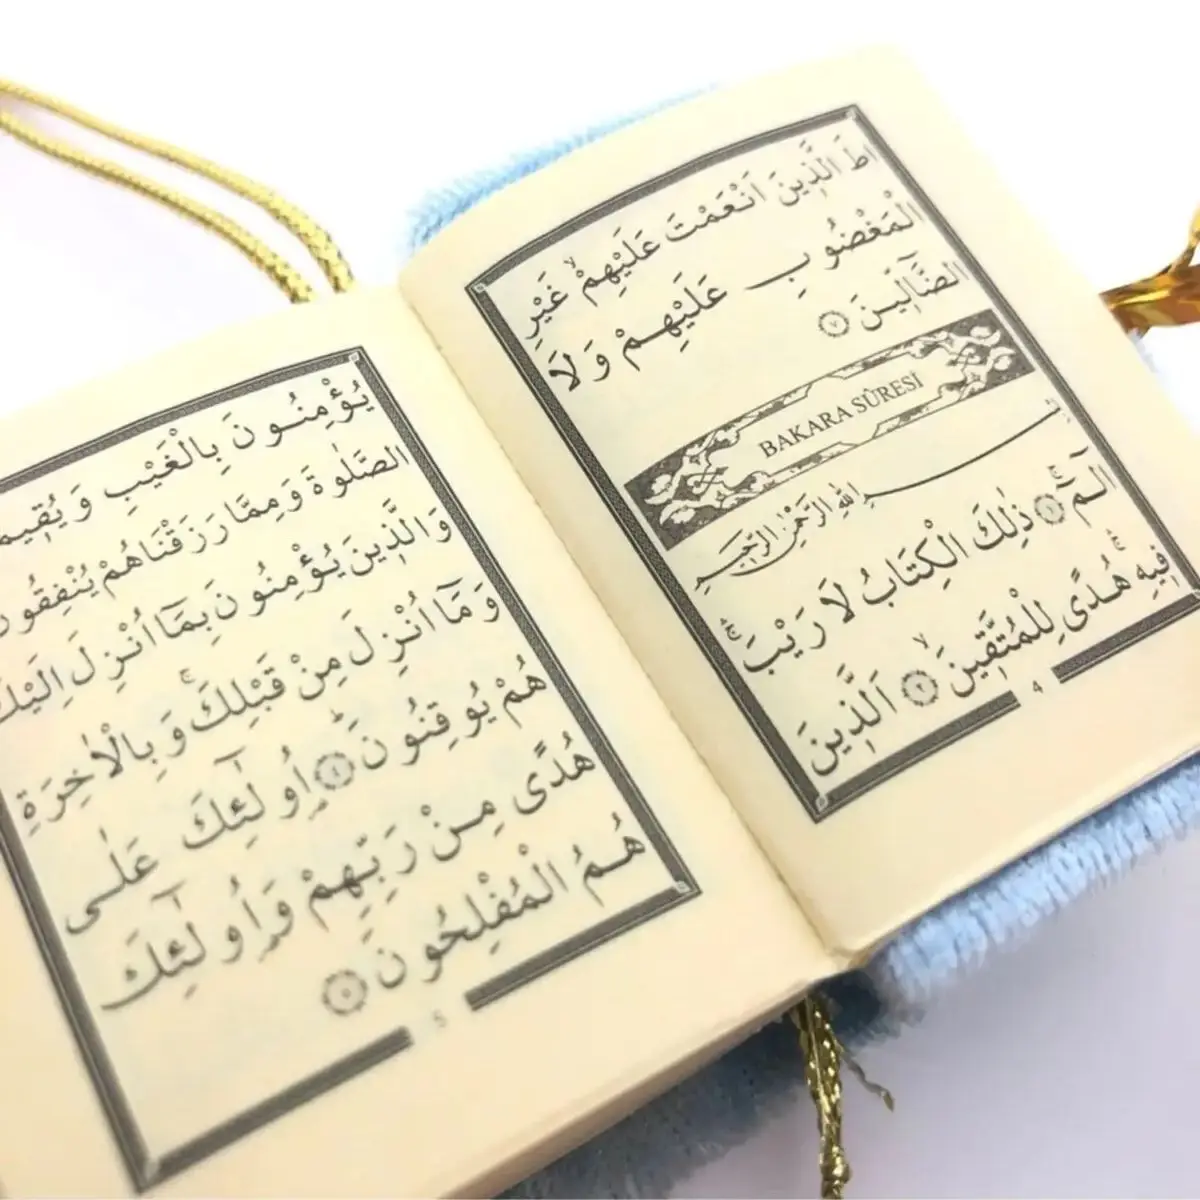 طَ الَّذ۪ينَ اَنْعَمْتَ عَلَيْهِمْۙ غَيْرِ
الْمَغْضُوبِ عَلَيْهِمْ وَلَا
الضَّٓالّ۪ينَ ﴿٧﴾
BAKARA SÛRESİ
بِسْمِ اللهِ الرَّحْمٰنِ الرَّح۪يمِ
الٓمٓۚ ﴿١﴾ ذٰلِكَ الْكِتَابُ لَا رَيْبَۚۛ
ف۪يهِۚۛ هُدًى لِلْمُتَّق۪ينَۙ ﴿٢﴾ اَلَّذ۪ينَ
4
يُؤْمِنُونَ بِالْغَيْبِ وَيُق۪يم
الصَّلٰوةَ وَمِمَّا رَزَقْنَاهُمْ يُنْفِقُون
وَالَّذ۪ينَ يُؤْمِنُونَ بِمَٓا اُنْزِلَ اِلَيْكَ
وَمَٓا اُنْزِلَ مِنْ قَبْلِكَۚ وَبِالْاٰخِرَةِ
هُمْ يُوقِنُونَۜ ﴿٤﴾ اُو۬لٰٓئِكَ عَلٰى
هُدًى مِنْ رَبِّهِمْ وَاُو۬لٰٓئِكَ
هُمُ الْمُفْلِحُونَ ﴿٥﴾
5